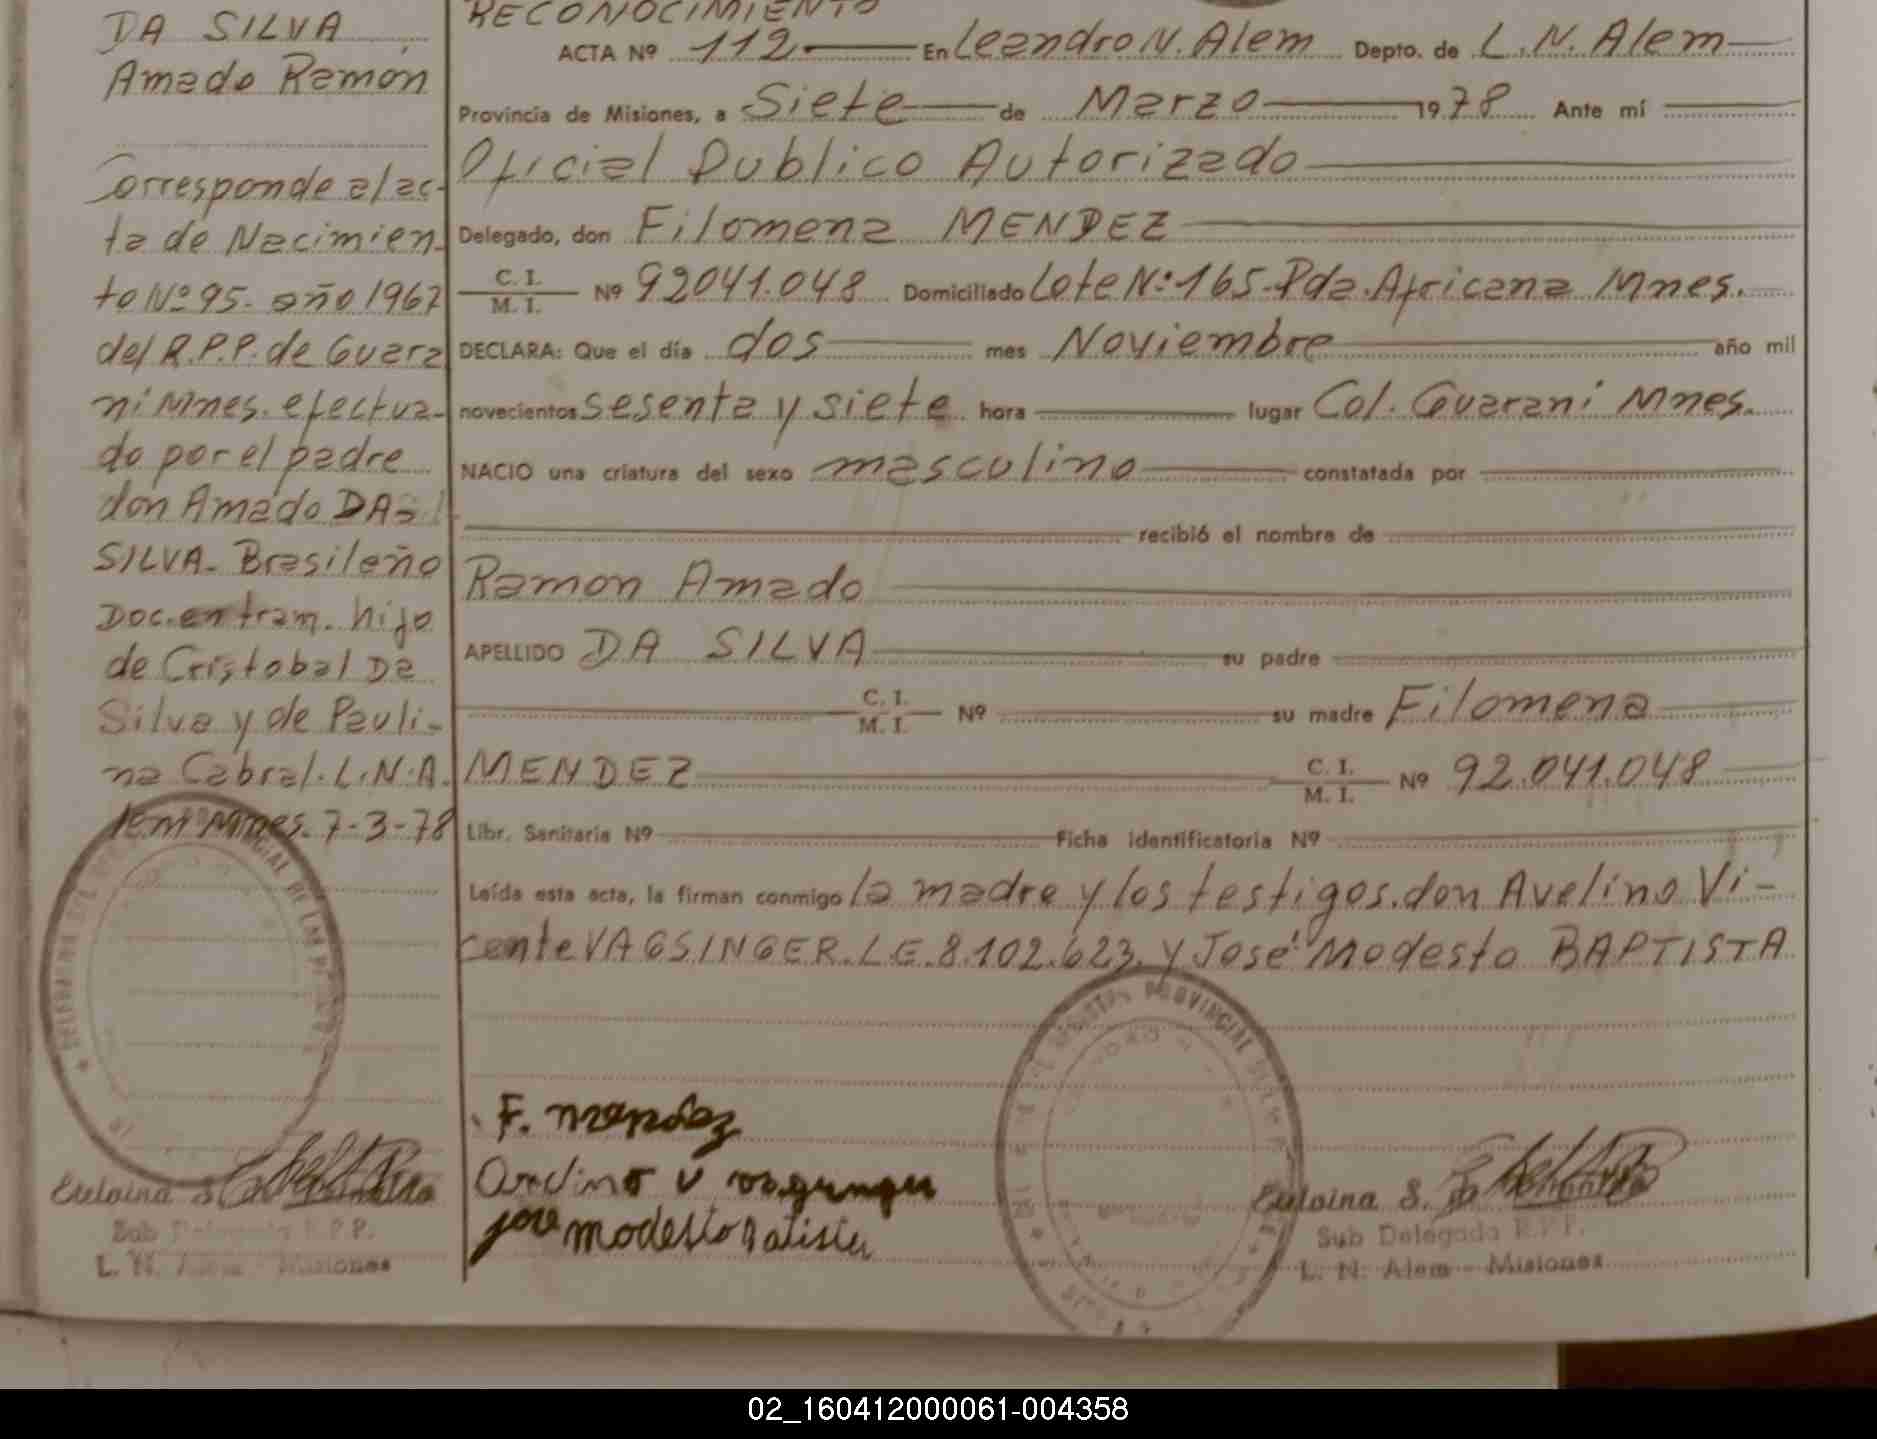 DA SILVA
Amado Ramon
Corresponde al ac-
ta de Nacimien-
to Nº 95. año 1967
del R.P.P. de Guara
ni Mnes. efectua-
do por el padre
don Amado DA
SILVA. Brasileño
Doc. en tram. hijo
de Cristobal Da
Silva y de Pauli-
na Cabral. L.N.A.
lem Mnes. 7-3-78
RECONOCIMIENTO
ACTA Nº 112 En Leandro N. Alem Depto. de L. N. Alem
Provincia de Misiones, a Siete de Marzo 1978 Ante mí
Oficial Publico Autorizado
Delegado, don Filomena MENDEZ
C. I.
M. I. Nº 92041.048 Domiciliado Lote Nº: 165-Pda. Africana Mnes.
DECLARA: Que el día dos mes Noviembre año mil
novecientos sesenta y siete hora lugar Col. Guarani Mnes.
NACIO una criatura del sexo masculino constatada por
recibió el nombre de
Ramon Amado
APELLIDO DA SILVA su padre
C. I.
M. I. Nº su madre Filomena
MENDEZ C. I.
M. I. Nº 92.041.048
Libr. Sanitaria Nº Ficha identificatoria Nº
Leída esta acta, la firman conmigo la madre y los testigos. don Avelino Vi-
cente VAGSINGER. L.E. 8.102.623. y José Modesto BAPTISTA
PROVINCIAL DE LAS
PROVINCIAL
F. mendez
jose modesto Batista
Euloina S.
Sub Delegada R.P.P.
L. N. Alem - Misiones
Euloina S.
Sub Delegada R.P.P.
L. N. Alem - Misiones
02_160412000061-004358